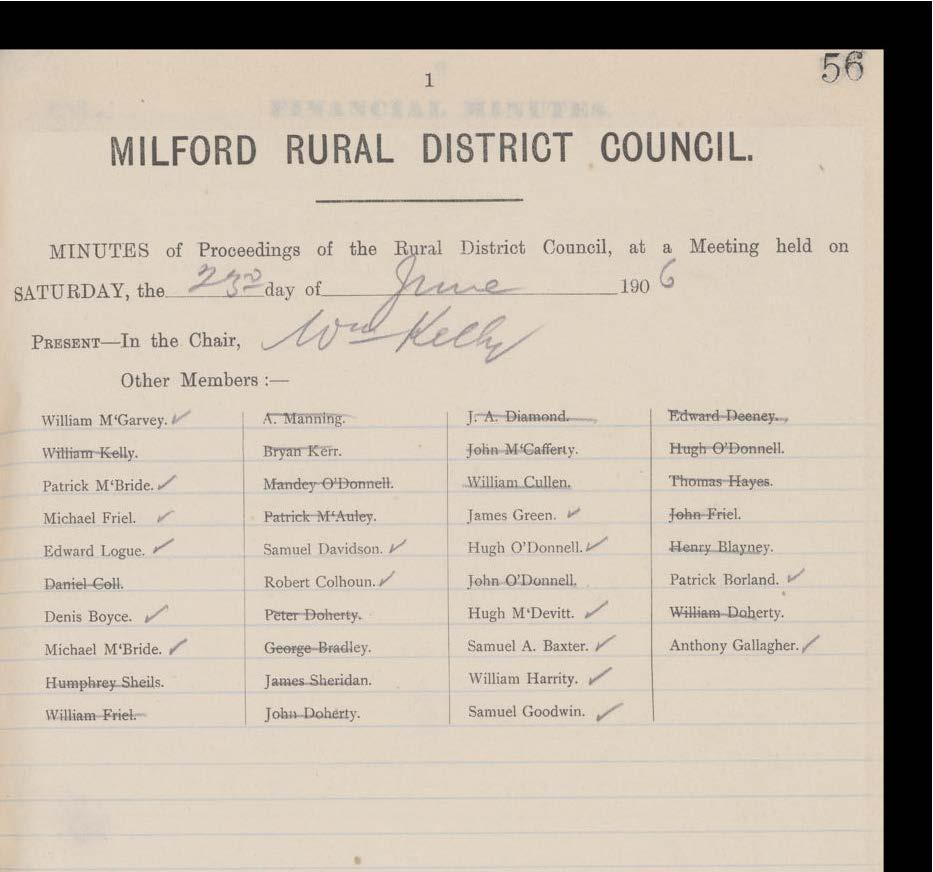 56
1
MILFORD RURAL DISTRICT COUNCIL.
MINUTES of Proceedings of the Rural District Council, at a Meeting held on
SATURDAY, the 23rd day of June 1906
PRESENT—In the Chair, Wm Kelly
Other Members :—
William M‘Garvey.
William Kelly.
Patrick M‘Bride.
Michael Friel.
Edward Logue.
Daniel Coll.
Denis Boyce.
Michael M‘Bride.
Humphrey Sheils.
William Friel.
A. Manning.
Bryan Kerr.
Mandey O’Donnell.
Patrick M‘Auley.
Samuel Davidson.
Robert Colhoun.
Peter Doherty.
George Bradley.
James Sheridan.
John Doherty.
J. A. Diamond.
John M‘Cafferty.
William Cullen.
James Green.
Hugh O’Donnell.
John O’Donnell.
Hugh M‘Devitt.
Samuel A. Baxter.
William Harrity.
Samuel Goodwin.
Edward Deeney.
Hugh O’Donnell.
Thomas Hayes.
John Friel.
Henry Blayney.
Patrick Borland.
William Doherty.
Anthony Gallagher.